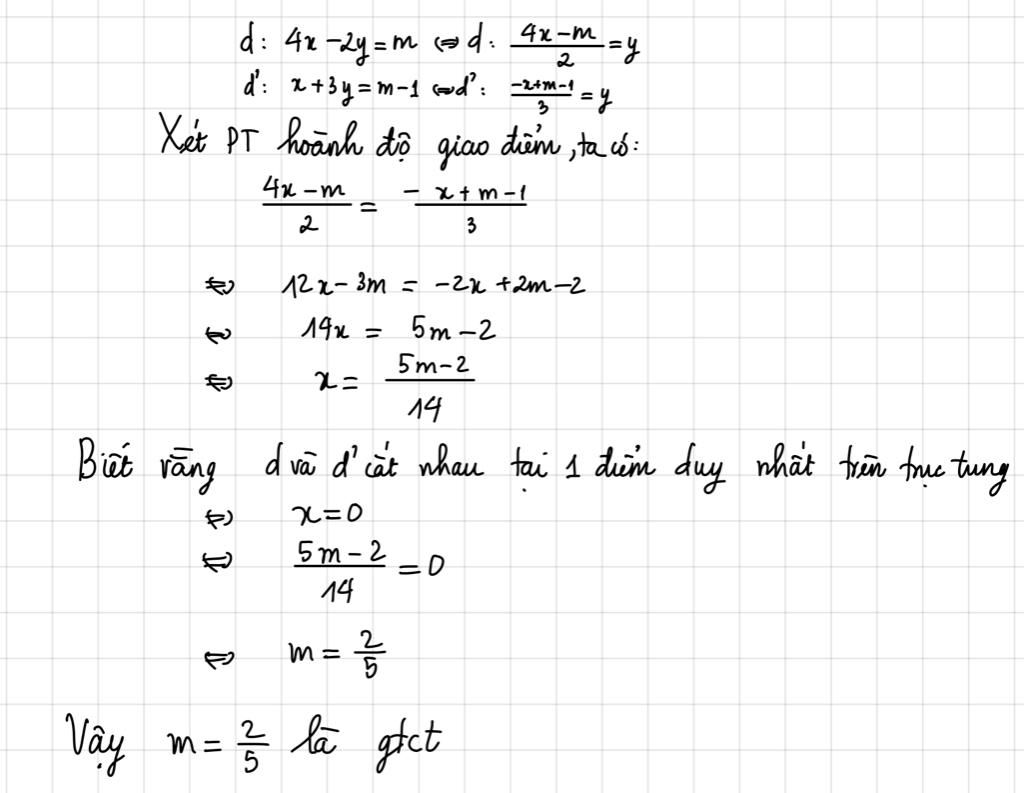 d: 4x - 2y = m ⇔ d: (4x-m)/2 = y
d': x + 3y = m - 1 ⇔ d': (-x+m-1)/3 = y
Xét PT hoành độ giao điểm, ta có:
(4x - m)/2 = (- x + m - 1)/3
⇔ 12x - 3m = -2x + 2m - 2
⇔ 14x = 5m - 2
⇔ x = (5m - 2)/14
Biết rằng d và d' cắt nhau tại 1 điểm duy nhất trên trục tung
⇔ x = 0
⇔ (5m - 2)/14 = 0
⇔ m = 2/5
Vậy m = 2/5 là gtct